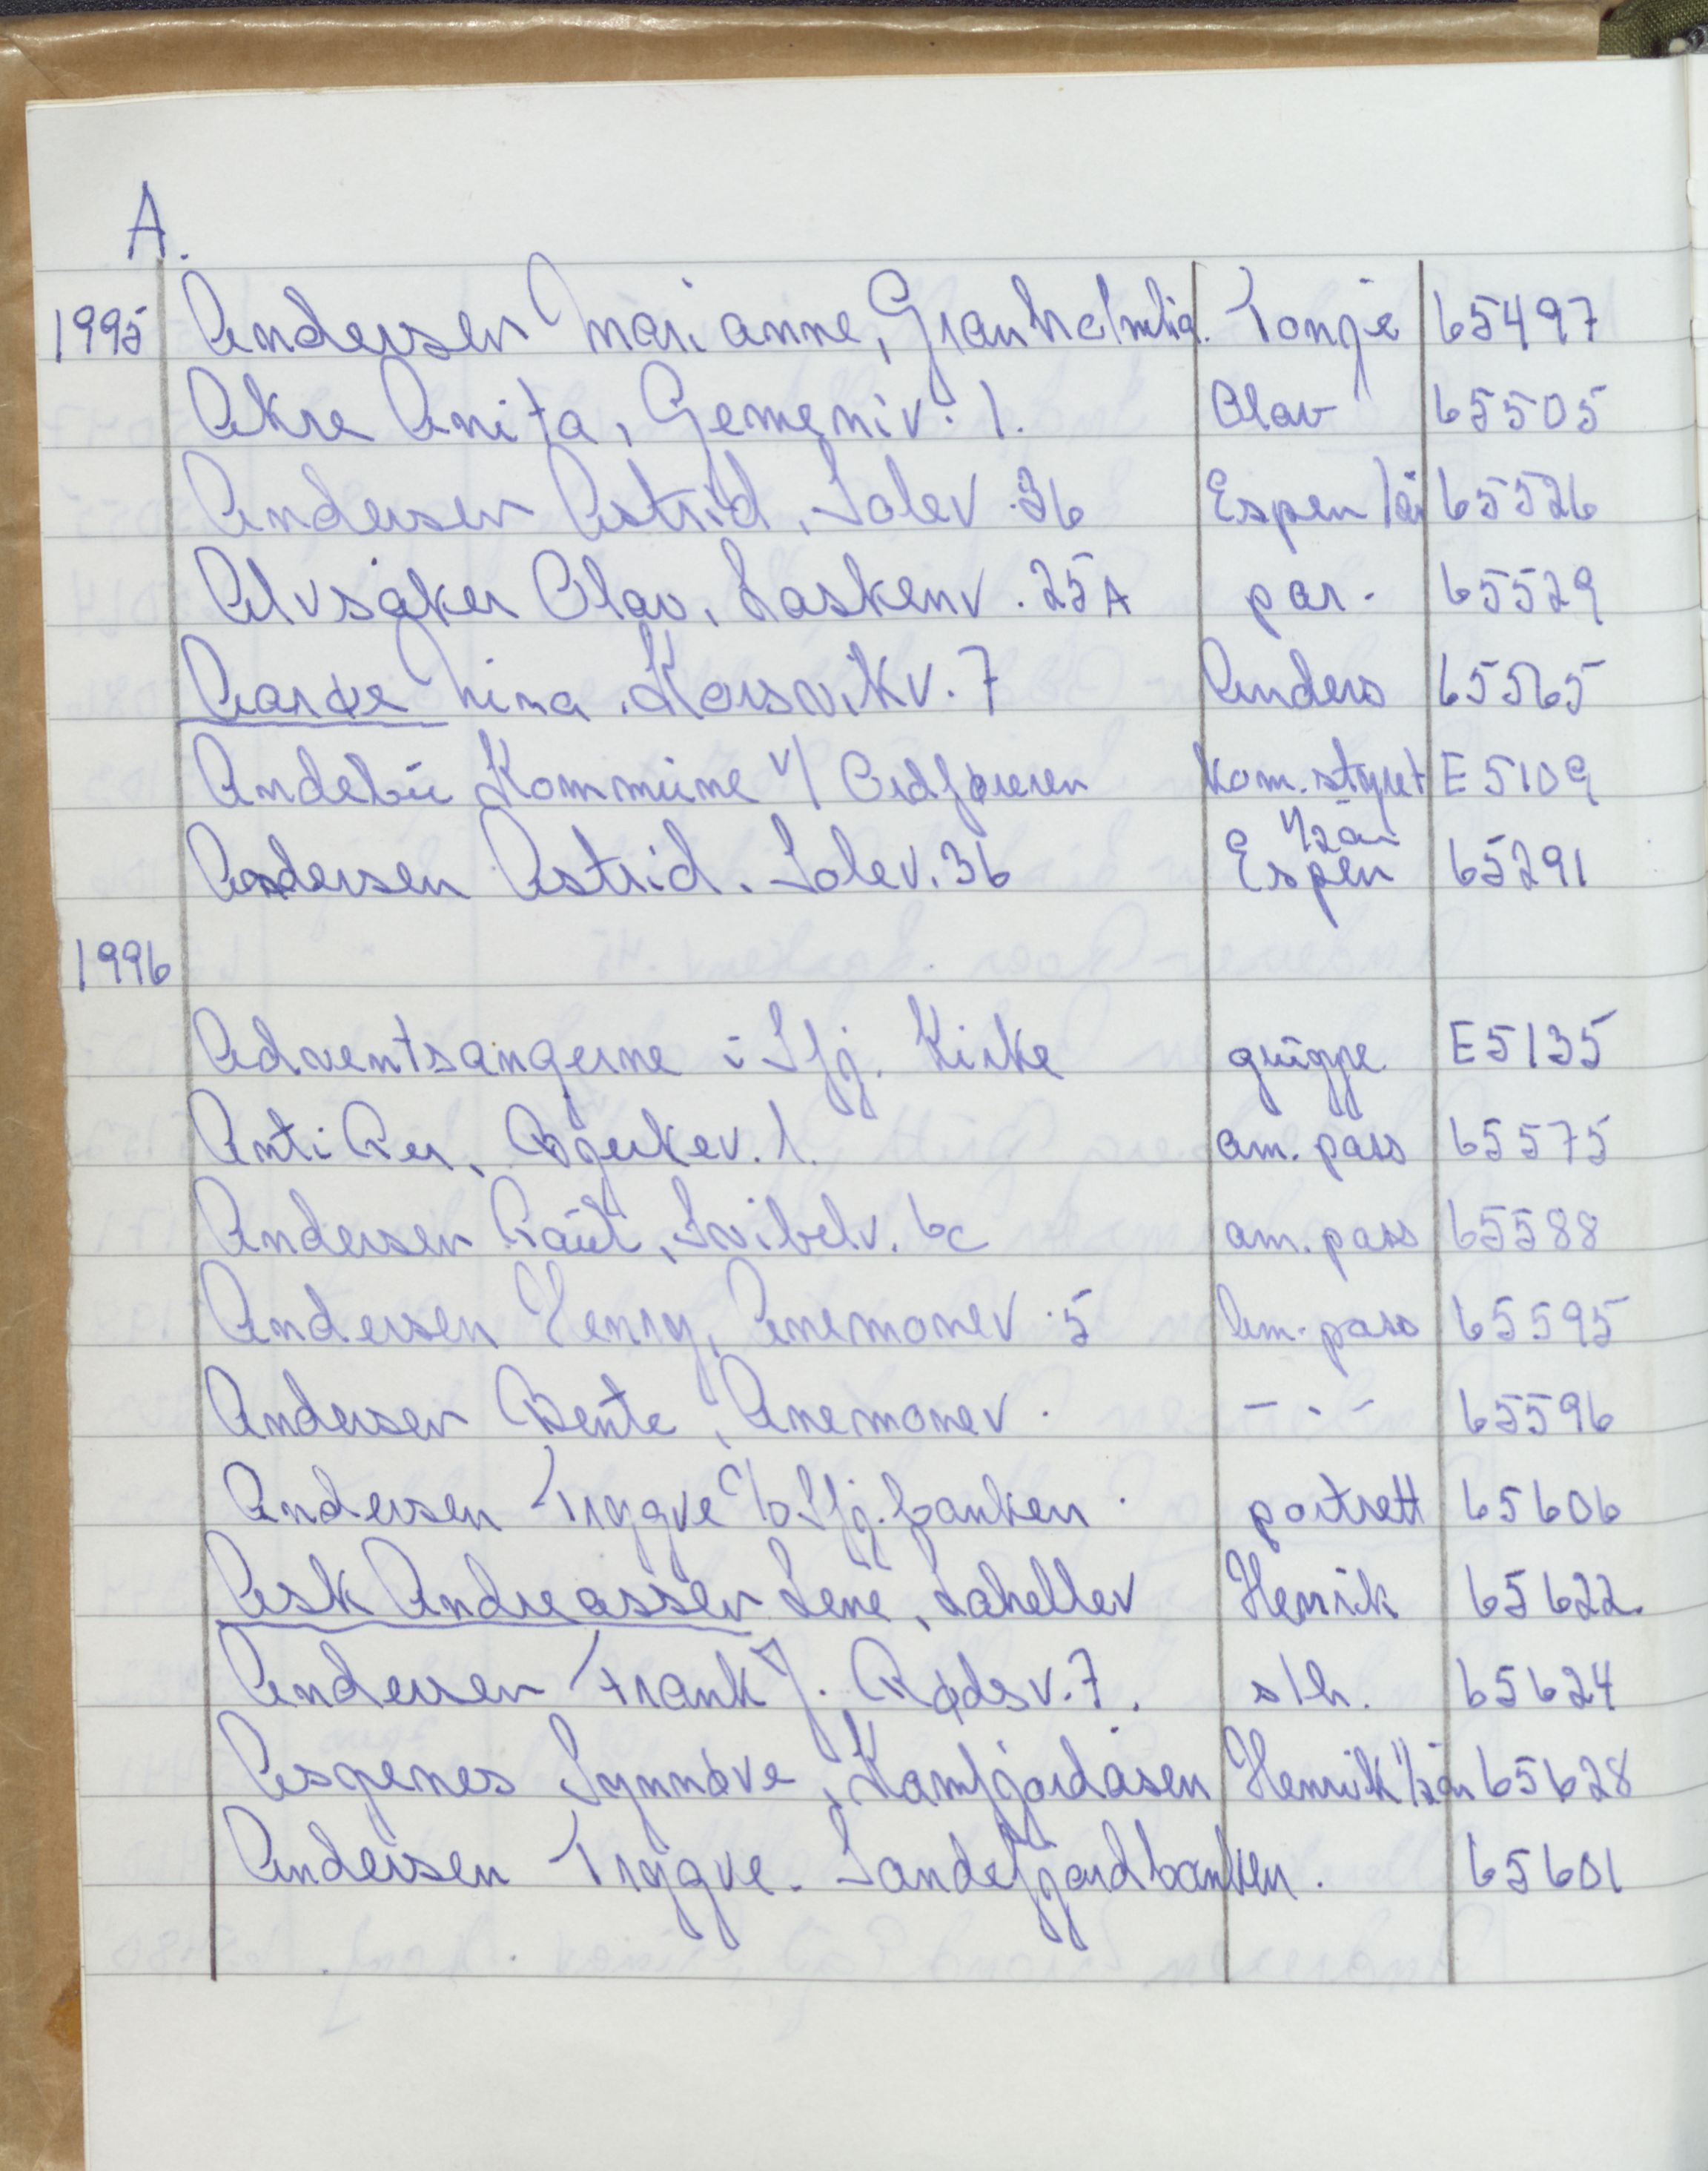 A.
1995 Andersen Marianne, Granholmlia. Tonje 65497
Akre Anita, Gemeniv. 1. Olav 65505
Andersen Astrid, Solev. 36 Espen 1år 65526
Alvsåker Olav, Laskenv. 25A par. 65529
Aarøe Nina. Korsvikv. 7 Anders 65565
Andebu Kommune v/ Ordføreren Kom.styret E5109
Andersen Astrid. Solev. 36 Espen ½år 65291
1996
Adventsangerne i Sfj. Kirke gruppe E5135
Anti Per, Bjerkev. 1. am. pass 65575
Andersen Paul, Svibelv. 6c am. pass 65588
Andersen Henry, Anemonev. 5 Am. pass 65595
Andersen Bente, Anemonev. - . - 65596
Andersen Trygve c/o Sfj. banken. portrett 65606
Ask Andreassen Lene, Lahellev Henrik 65622.
Andersen Frank J. Rødsv. 7. slh. 65624
Asgenes Synnøve, Kamfjordåsen Henrik ½år 65628
Andersen Trygve. Sandefjordbanken. 65601